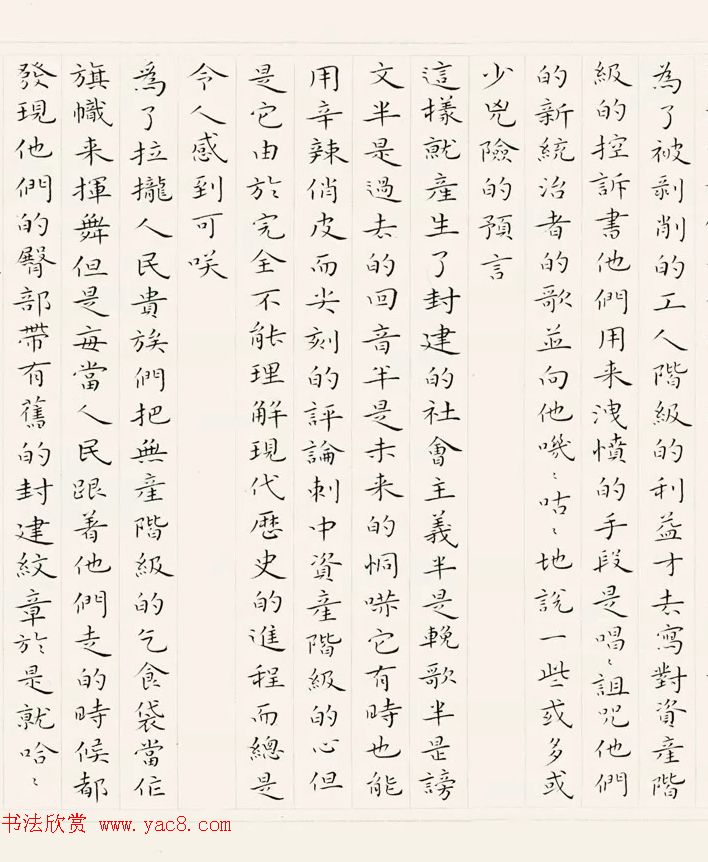 為了被剥削的工人階級的利益才去寫對資産階
級的控訴書他們用来洩憤的手段是唱〻詛咒他們
的新統治者的歌並向他嘰〻咕〻地說一些或多或
少兇險的預言
這樣就產生了封建的社會主義半是輓歌半是謗
文半是過去的回音半是未来的恫嚇它有時也能
用辛辣俏皮而尖刻的評論刺中資産階級的心但
是它由於完全不能理解現代歷史的進程而總是
令人感到可咲
爲了拉攏人民貴族們把無産階級的乞食袋當作
旗幟来揮舞但是每當人民跟着他們走的時候都
發現他們的臀部帶有舊的封建紋章於是就哈〻
书法欣赏 www.yac8.com